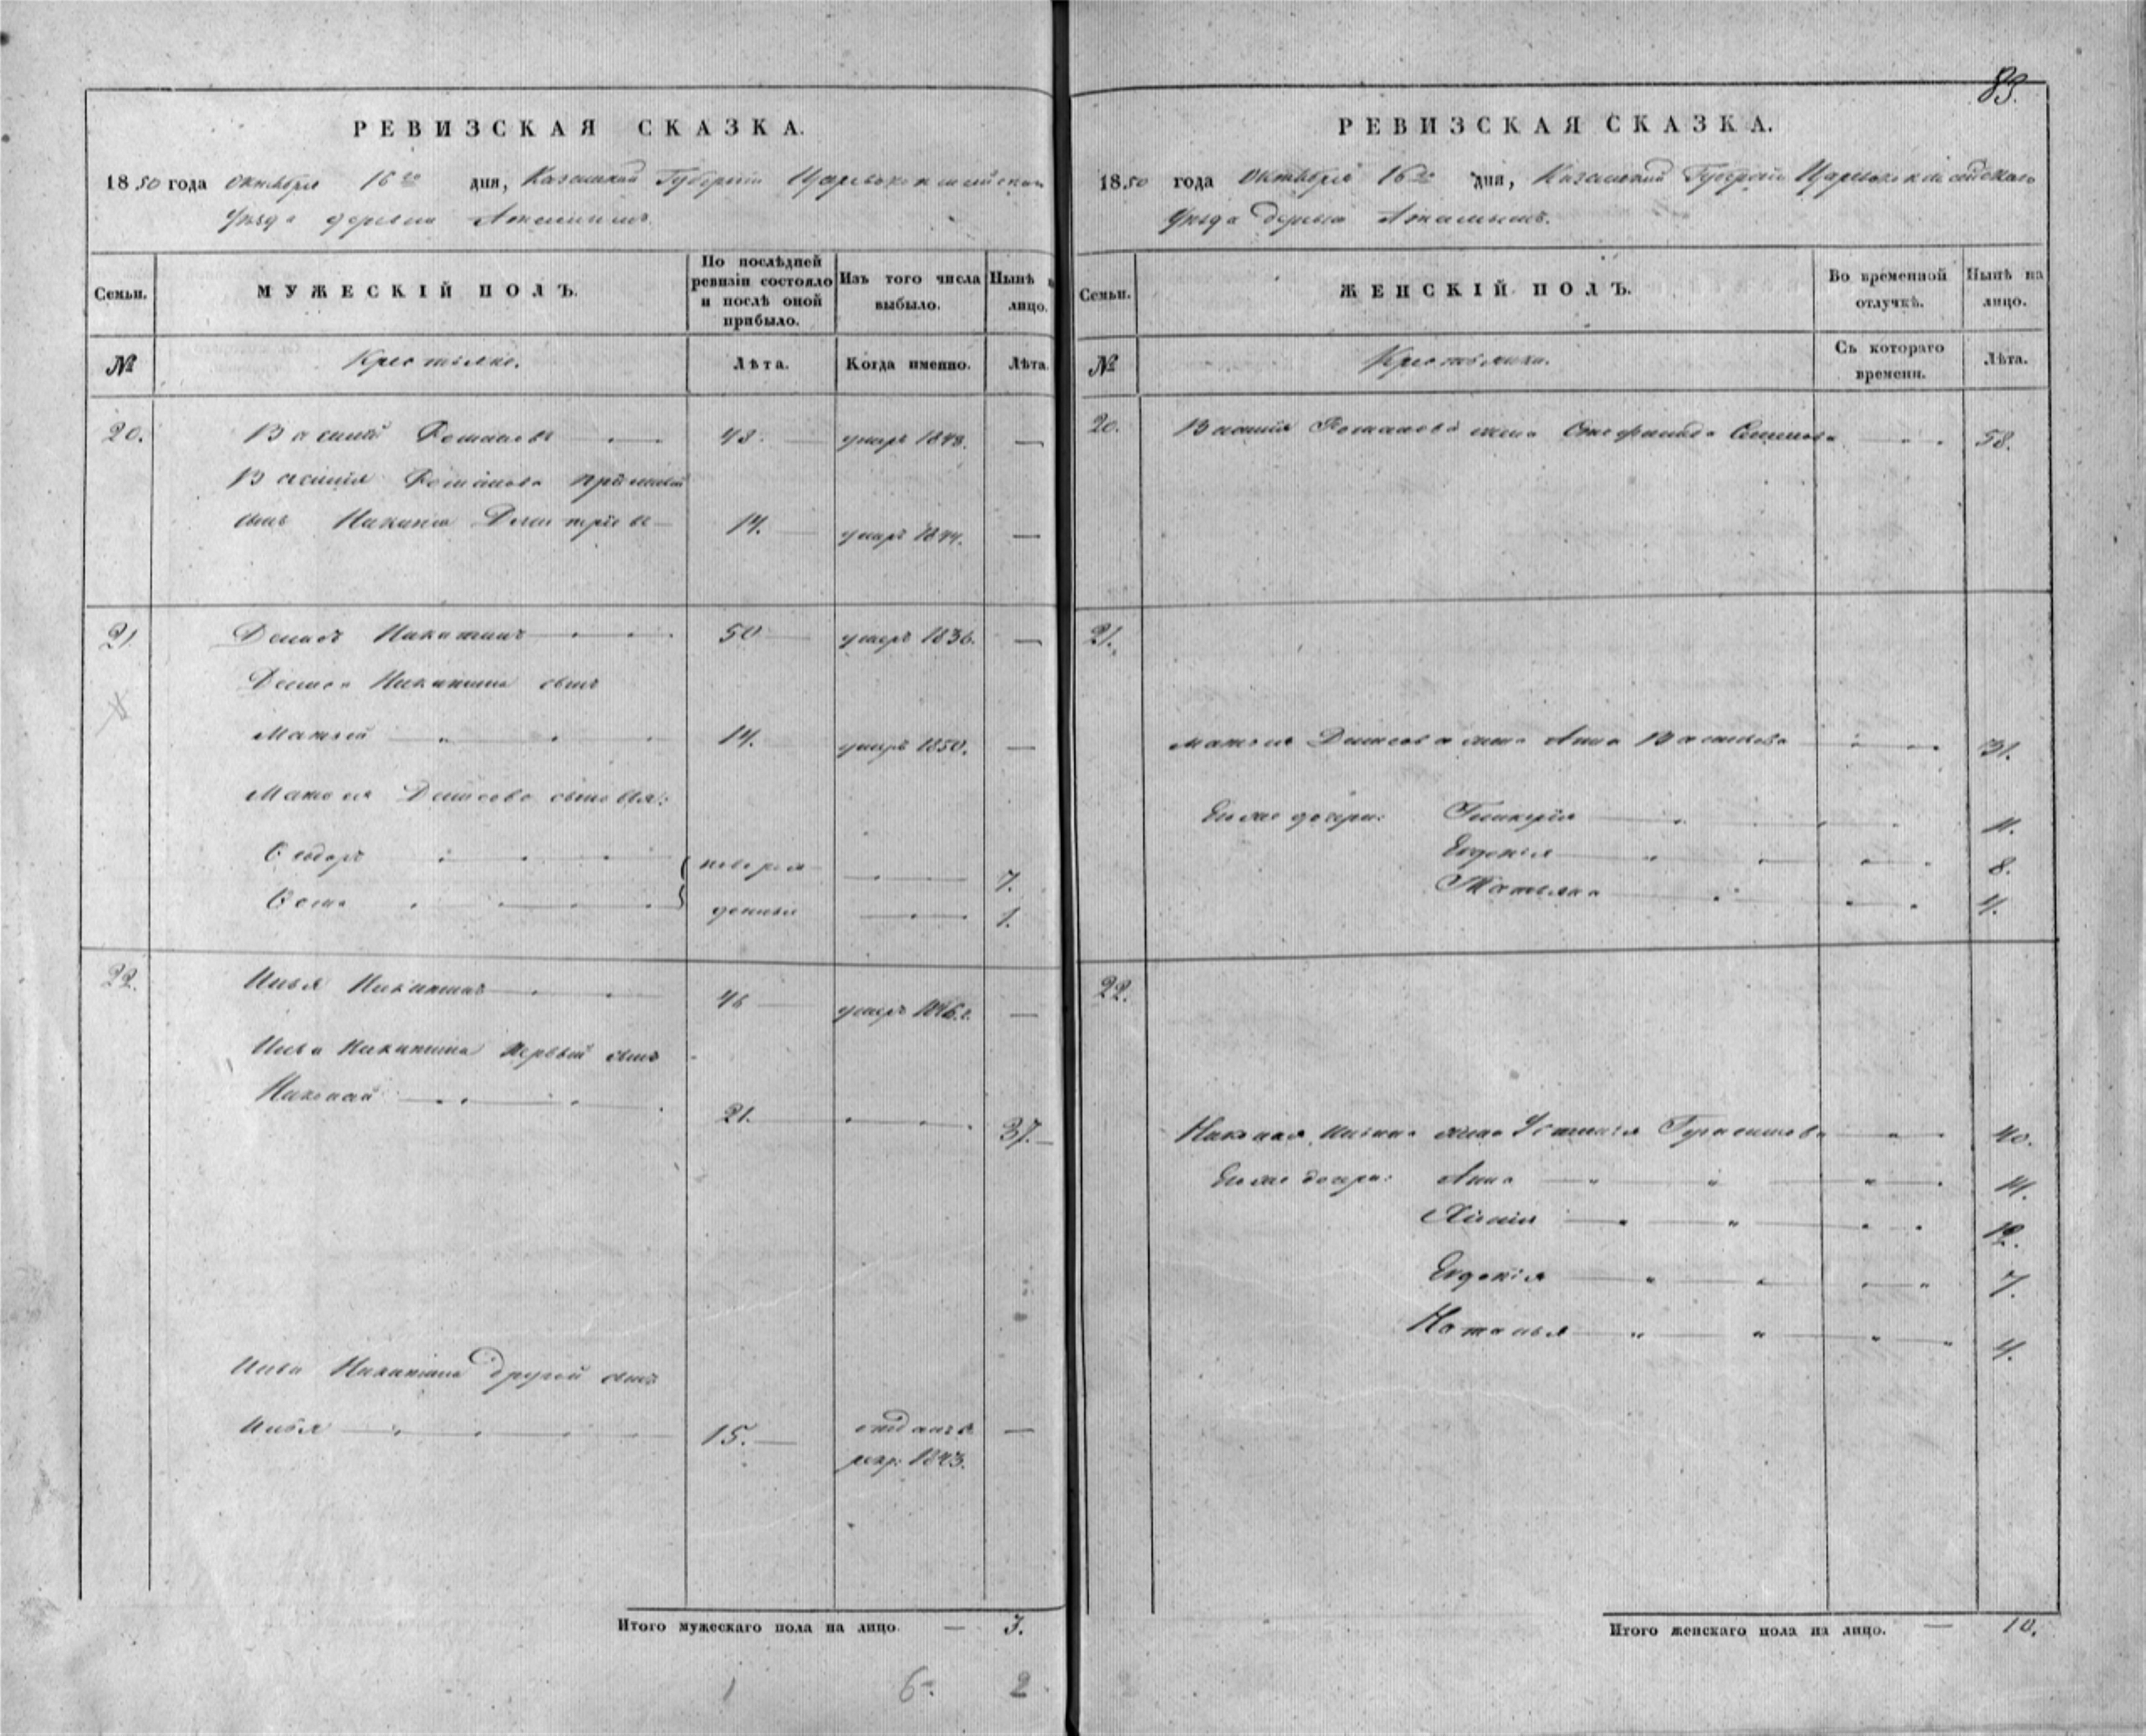 83.
РЕВИЗСКАЯ СКАЗКА.
1850 года Октября 16го дня, Казанской Губернiи Царевококшайскаго
Уѣзда деревни
Семьи. МУЖЕСКIЙ ПОЛЪ. По послѣдней ревизiи состояло и послѣ оной прибыло. Изъ того числа выбыло. Нынѣ на лицо.
№ Крестьяне. Лѣта. Когда именно. Лѣта.
20. Василiй Романовъ 43. умеръ 1848. —
Василiя Романова прiемный
сынъ Никита Дмитрiевъ 14. умеръ 1844. —
21. Денисъ Никитинъ 50 умеръ 1836. —
Дениса Никитина сынъ
Матвей 14. умеръ 1850. —
Матвея Денисова сыновья:
Ѳедоръ 7.
1.
22. Илья Никитинъ 46 умеръ —
Ильи Никитина первый сынъ
Николай 21. 37.
Ильи Никитина другой сынъ
Илья 15. отданъ в
рекр: 1843. —
Итого мужескаго пола на лицо. — 3.
1 6 2
РЕВИЗСКАЯ СКАЗКА.
1850 года Октября 16го дня, Казанской Губернiи Царевококшайскаго
Уѣзда деревни
Семьи. ЖЕНСКIЙ ПОЛЪ. Во временной отлучкѣ. Нынѣ на лицо.
№ Крестьянки. Съ котораго времени. Лѣта.
20. Василiя Романова жена Степанида Семенова 58.
21.
Матвея Денисова жена Анна Васильева 31.
Ея же дочери: Гликерiя 11.
Евдокiя 8.
Татьяна 4.
22.
Николая Ильина жена Устинья Герасимова 40.
Ея же дочери: Анна 14.
Ксенiя 12.
Евдокiя 7.
Наталья 4.
Итого женскаго пола на лицо. — 10.